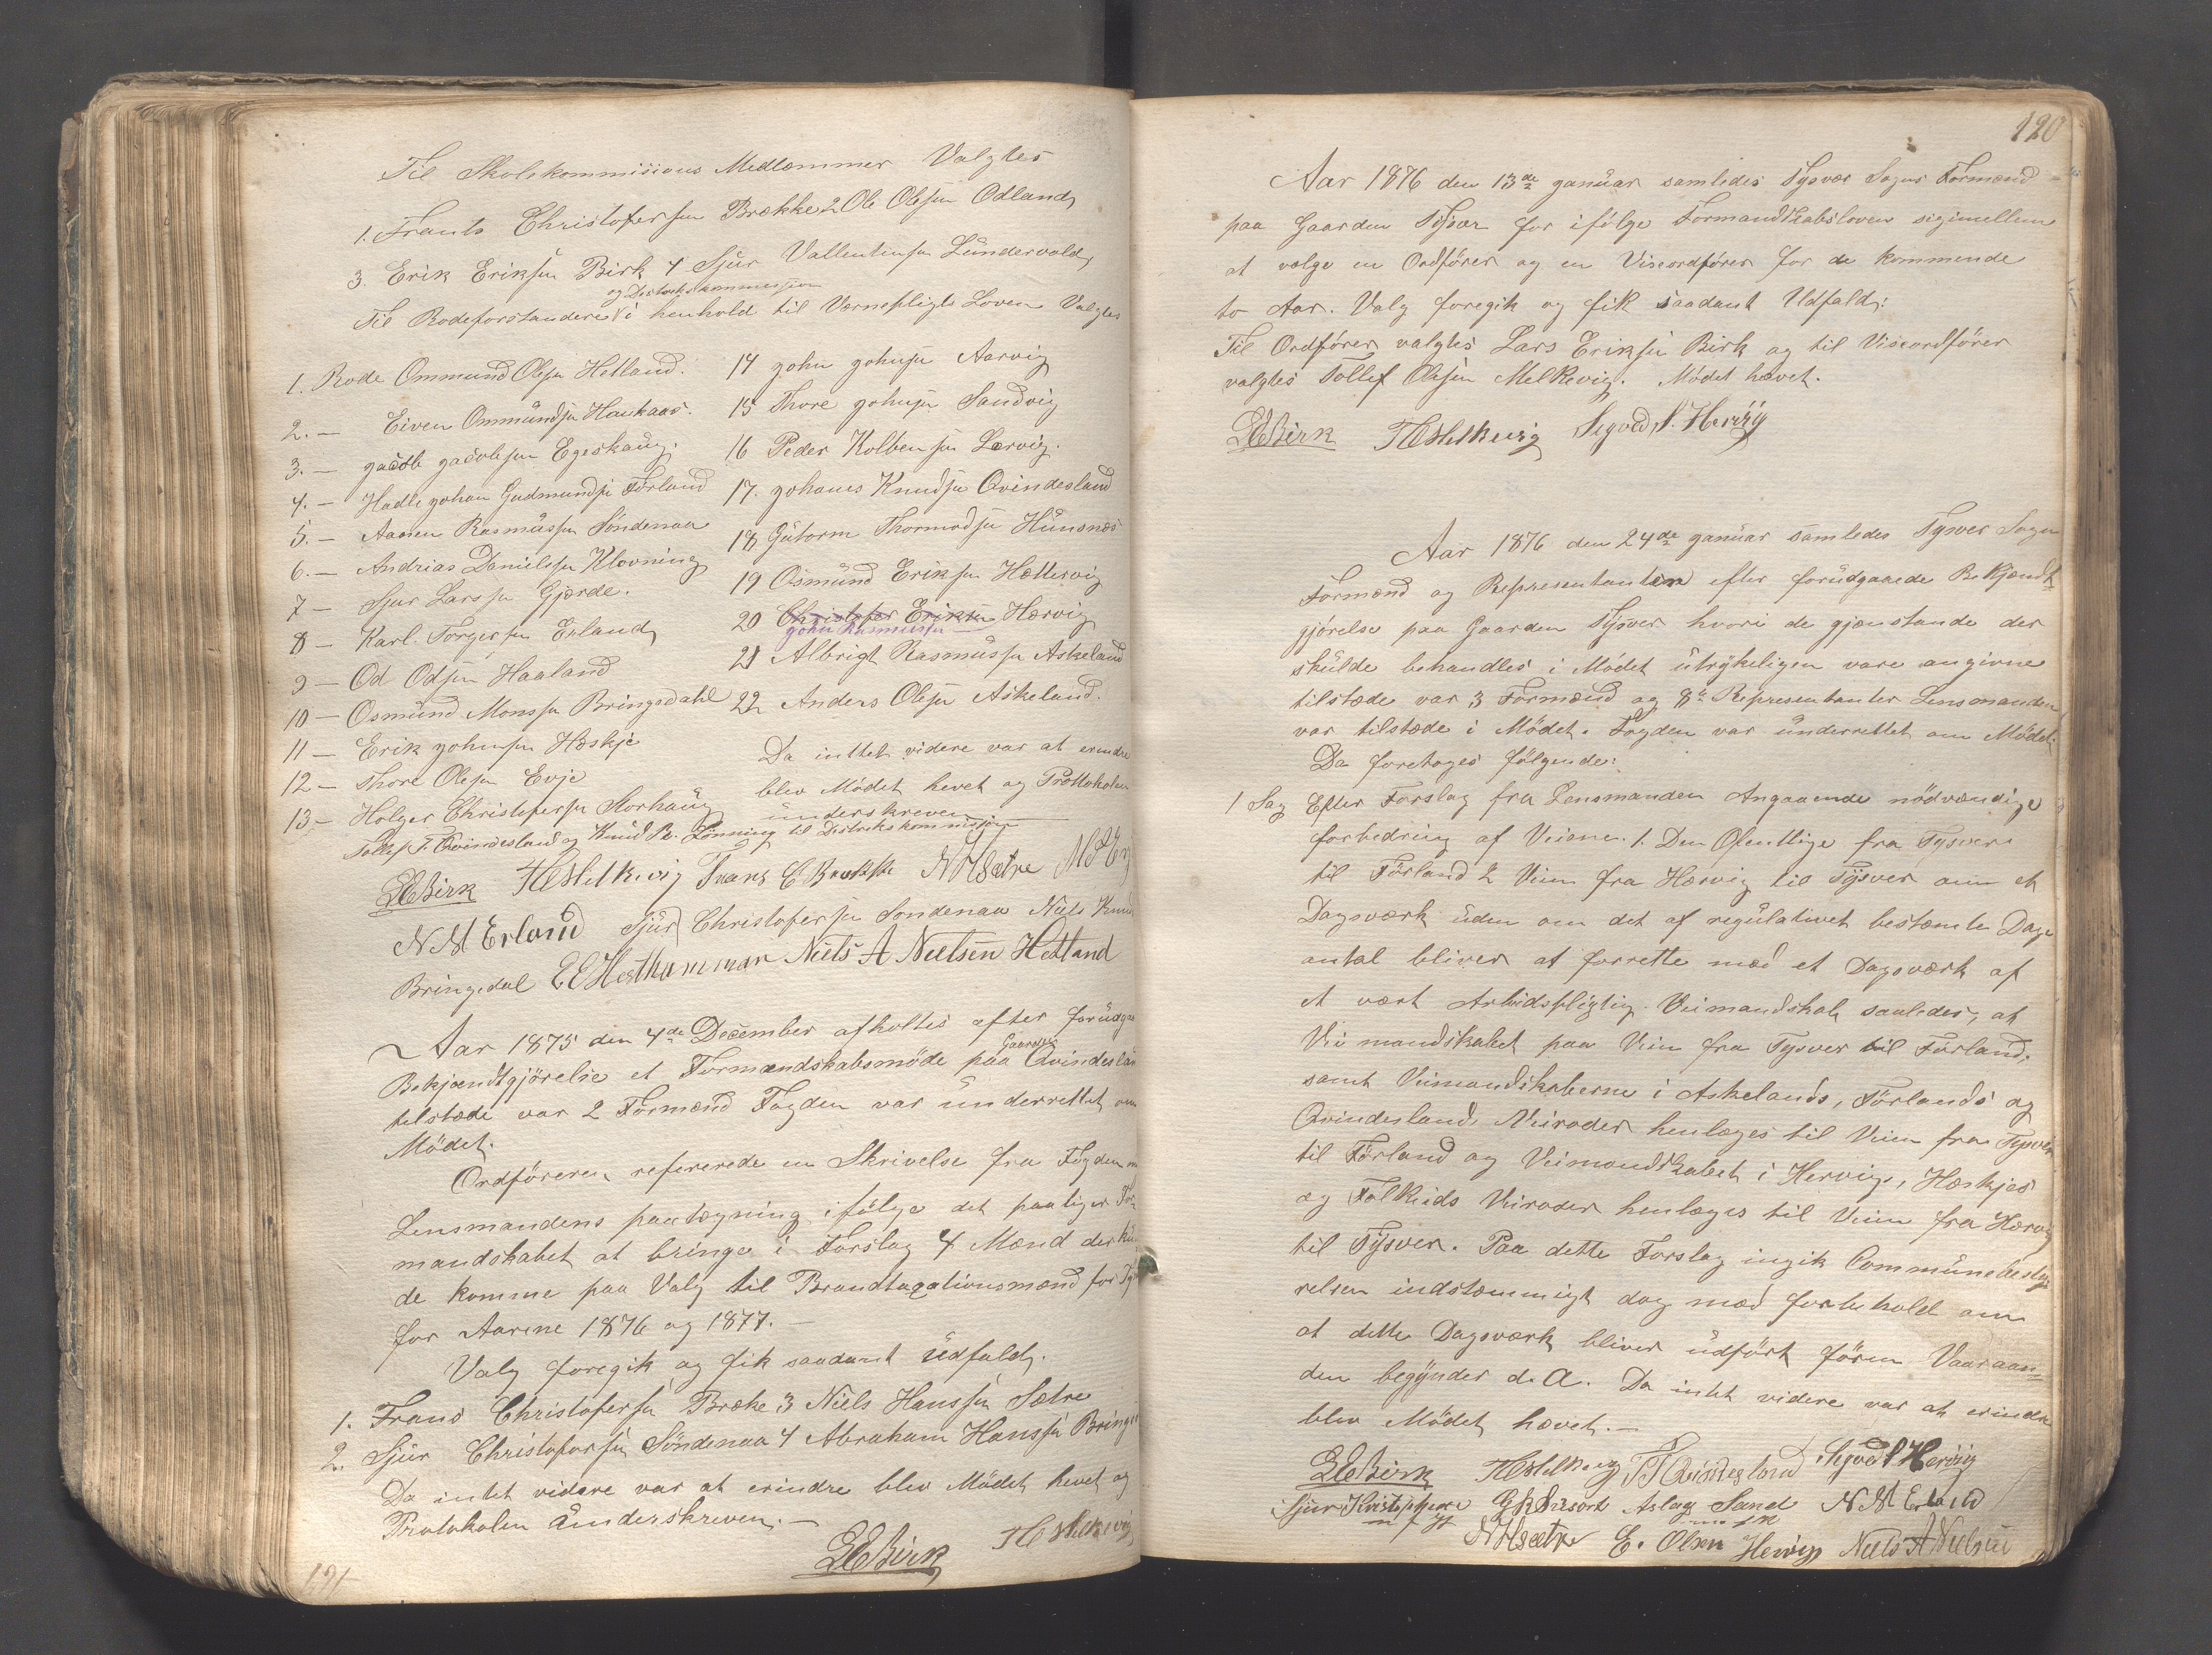 Til Skolekommisions Medlemmer Valgtes
1. Frants Christofersen Brække 2 Ole Olesen Odland,
3. Erik Eriksen Birk 4 Sjur Vallentinsen Lündervold,
og Distriktskommission
Til Rodeforstandere i henhold til Værnepligts Loven Valgtes
1. Rode Ommund Olesen Hetland.
2. — Eiven Ommündsen Haukaas.
3. — gacob gacobsen Egeskaug.
4. — Hadle gohan Gudmundsen Førland
5. — Aamen Rasmussen Söndenaa
6. — Andrias Danielsen Klovning
7 — Sjur Larssen Gjerde.
8 — Karl. Torgersen Erland,
9 — Od Odsen Haaland
10 — Osmünd Monssen Bringedahl
11 — Erik gohnsen Hæskje
12 — Thore Olesen Evje
13 — Holger Christofersen Storhaug
14 gohn gohnsen Aarvig
15 Thore gohnsen Sandvig
16 Peder Kolbensen Lærvig.
17. gohanes Knudsen Qvindesland
18 Gütorm Thormodsen Hünsnæs
19 Osmünd Eriksen Hættervig
20 Christofer Eriksen Hærvig
gohn Rasmussen
21 Albrigt Rasmüssen Askeland
22 Anders Olesen Askeland.
Da inttet videre var at erindre
blev Mödet hevet og Prottokolen
ünderskreven
Tollef T. Qvindesland og Knud R. Lønning til Distrikskommission
LEBirk TOMelkevig Frans C Brække NHSætre
NM Erland Sjür Christofersen Söndenaa Niels Knud
Bringedal EEHesthammar Niels A Nielsen Hetland
Aar 1875 den 4de December afholtes efter forüdga
Gaarden
Bekjendtgjörelse et Formændskabsmöde paa Qvindeslan
telstæde var 2 Formænd Fogden var ünderrettet om
Mödet.
Ordföreren refererede en Skrivelse fra Fogden m
Lensmandens paategning ifölge det paaliger For
mandskabet at bringe i Forslag 4 Mænd der kün
de komme paa Valg til Brandtaxationsmænd for Ty
for Aarene 1876 og 1877. —
Valg foregik og fik saadant üdfald.
1. Frans Christofersen Bræke 3 Niels Hanssen Sætre
2. Sjür Christofersen Söndenaa 4 Abraham Hanssen Bringe
Da intet videre var at erindre blev Mödet hevet og
Protokolen ünderskreven. —
LEBirk TOMelkevig
121
120
Aar 1876 den 13de ganüar samledes Tysvær Sogns Formænd
paa Gaarden Tysvær for ifölge Formandskabsloven sigimellem
at vælge en Ordförer og en Viseordförer for de kommende
to Aar. Valg foregik og fik saadant Udfald:
Til Ordförer valgtes Lars Eriksen Birk og til Viseordförer
valgtes Tollef Olesen Melkevig. Mödet hævet.
LEBirk TOMelkevig Sigvald S. Hervig
Aar 1876 den 24de ganüar samledes Tysver Sogns
Formænd og Representanter efter forüdgaaende Bekjendt
gjörelse paa Gaarden Tysver hvori de gjenstande der
skülde behandles i Mödet ütrykeligen vare angivne
tilstæde var 3 Formænd og 8te Representanter Lensmanden
var tilstæde i Mödet. Fogden var ünderrettet om Mödet.
Da foretoges fölgende:
1 Sag Efter Forslag fra Lensmanden Angaaende nödvændige
forbedring af Veiene. 1. Den Ofentlige fra Tysver
til Förland 2 Veien fra Hærvig til Tysver om et
Dagsværk üden om det af regülativet bestæmte Dags
antal bliver at forrette med et Dagsværk af
et vært Arbeidspligtig Veimandskab saaledes, at
Vei mandskabet paa Veien fra Tysver til Førland,
samt Veimandskaberne i Askelands, Förlands og
Qvindeslands Veiroder henlæges til Veien fra Tysver
til Førland og Veimandskabet i Hervigs, Hæskjes
og Falkeids Veiroder henlæges til Veien fra Hærvig
til Tysver. Paa dette Forslag ingik Commünebesty
relsen indstæmmigt dog med forbehold om
at dette Dagsværk bliver üdfört förenn Vaaraan=
den begÿnder d. A. Da intet videre var at erindre
blev Mödet hævet. —
LEBirk TOMelkevig TTQvindesland Sigvald S Hervig
Sjur Kristoffersen Aslag Sand NM Erland
NHSætre E. Olsen Hervig Niels A Nielsen